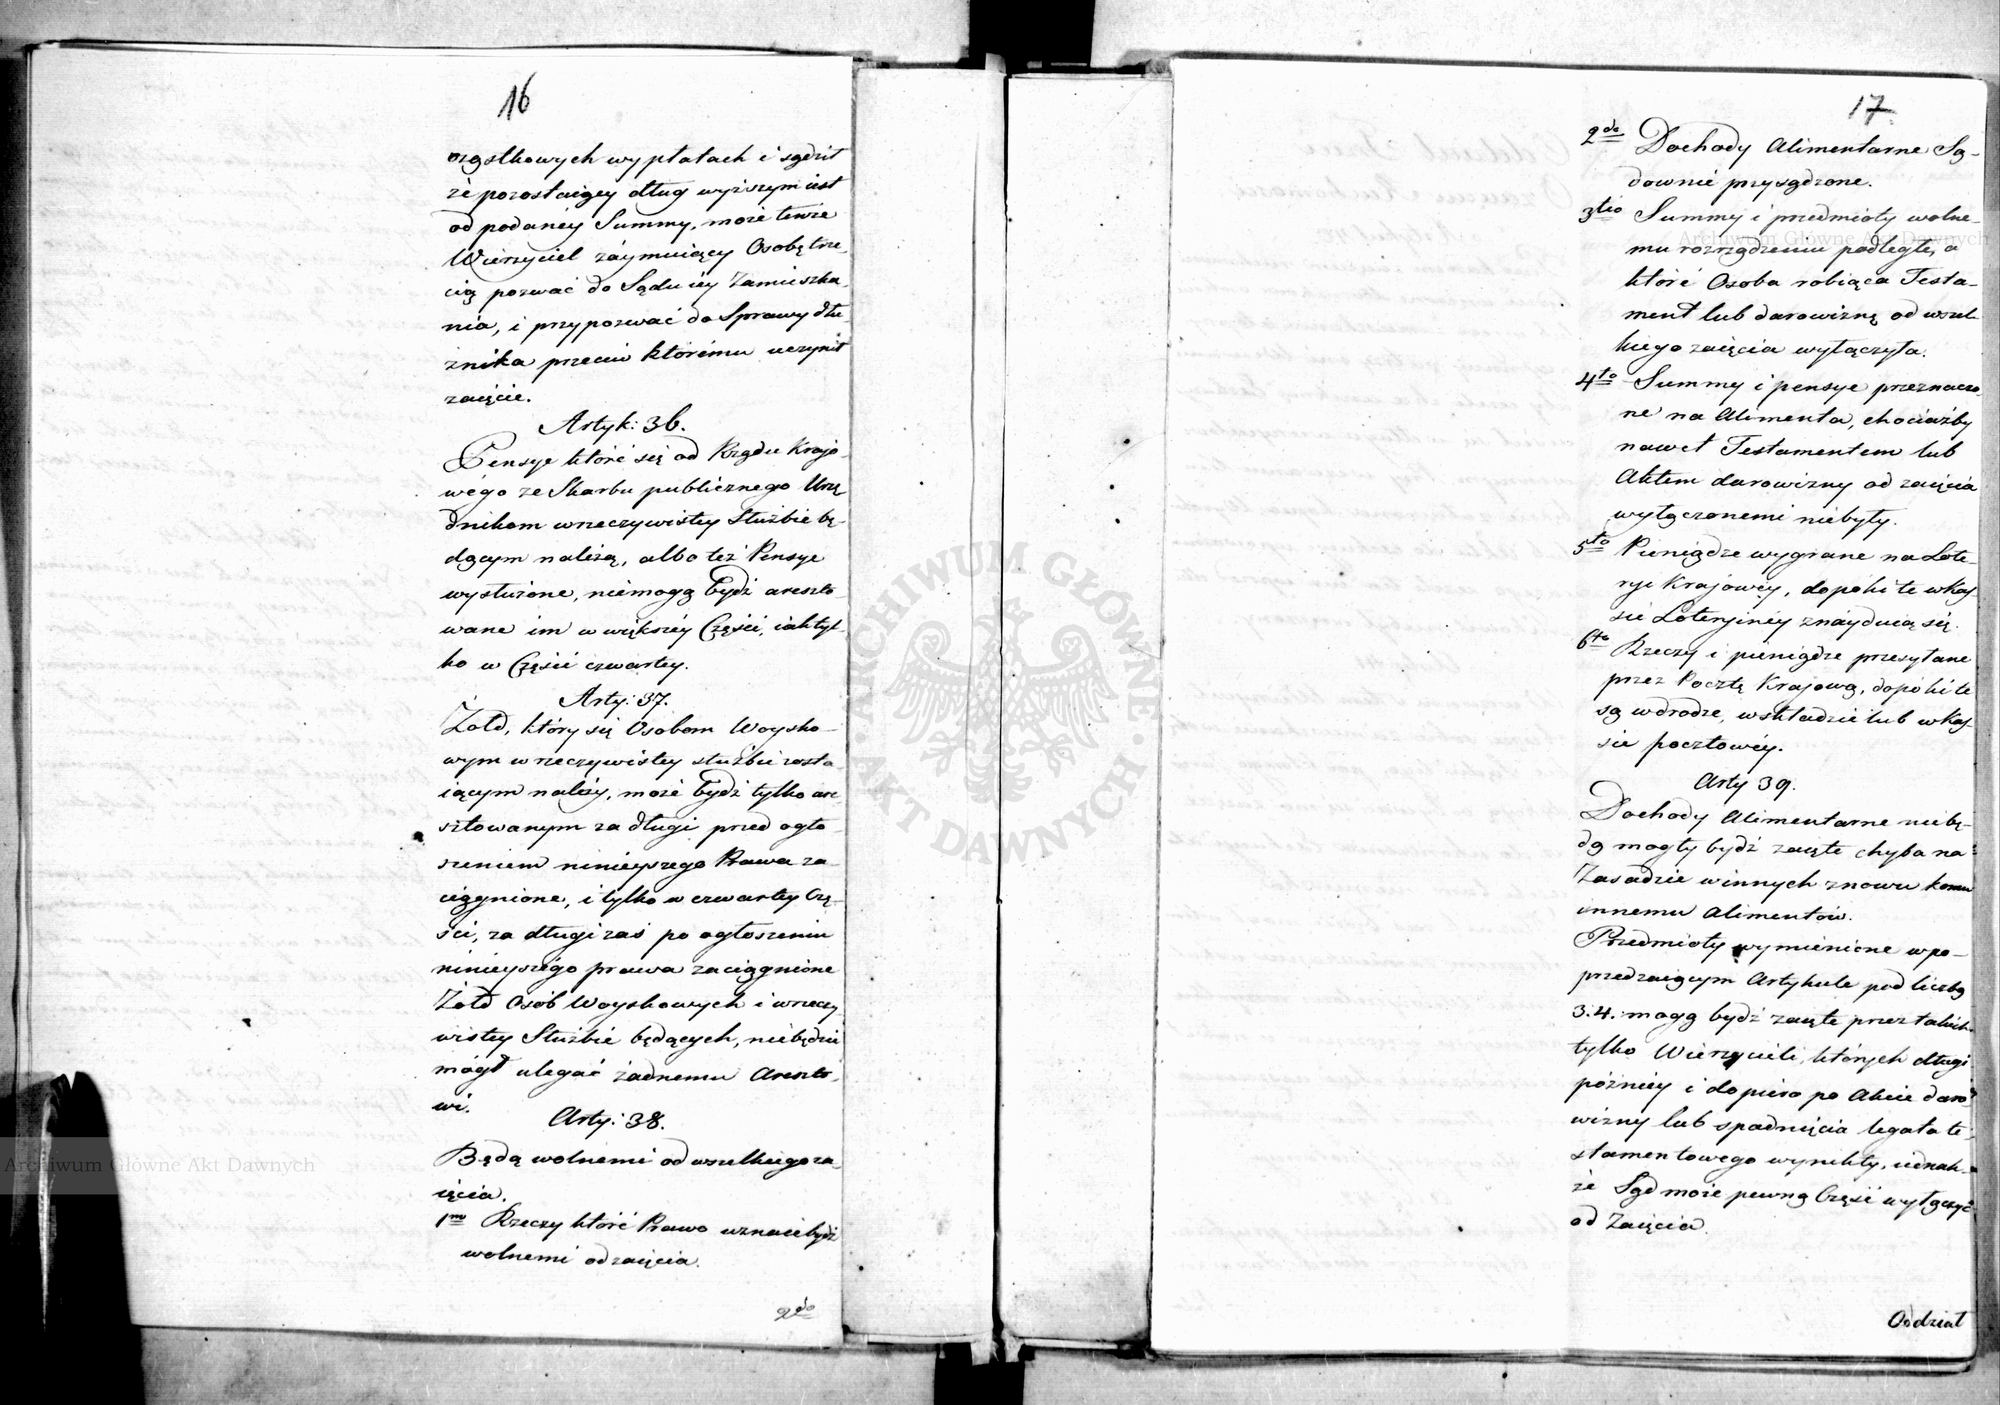 16
cząstkowych wypłatach i sądził
że pozostaiący dług wyższym iest
od podanéy Summy, może tenże
Wierzyciel zaymuiący Osobę trze-
cią pozwać do Sądu iéy Zamieszka-
nia, i przypozwać do Sprawy dłu-
żnika przeciw któremu uczynił
zaięcie.
Artyk: 36.
Pensye któré się od Rządu Krajo-
wégo ze Skarbu publicznego Urzę
dnikom w rzeczywistey służbie bę-
dącym należą, albo też Pensye
wysłużone, niemogą bydź areszto-
wane im w większéy Części, iak tyl-
ko w Części czwartey.
Arty: 37.
Żołd, który się Osobom Woysko-
wym w rzeczywistey służbie zosta-
iącym należy, może bydź tylko are
sztowanym za długi przed ogło-
szeniem ninieyszego Prawa za-
ciągnione, i tylko w czwartey Czę-
ści, za długi zaś po ogłoszeniu
ninieyszégo prawa zaciągnione
Żołd Osób Woyskowych i w rzeczy-
wistey Służbie będących, niebędzie
mógł ulegać żadnemu Areszto-
wi.
Arty: 38.
Będą wolnemi od wszelkiego za-
ięcia.
1mo Rzeczy któré Prawo uznaie bydź
wolnemi od zaięcia.
2do
17
2do Dochody Alimentarne Są-
downie przysądzone.
3tio Summy i przedmioty wolne-
mu rozrządzeniu podległe, a
któré Osoba robiąca Testa-
ment lub darowiznę od wszel-
kiego zaięcia wyłączyła.
4to Summy i pensye przeznaczo-
ne na Alimenta, chociażby
nawet Testamentem lub
Aktem darowizny od zaięcia
wyłączonemi niebyły.
5to Pieniądze wygrane na Lote-
ryi Krajowéy, dopoki te w Kas-
sie Loteryinéy znayduią się.
6to Rzeczy i pieniądze przesyłane
przez Pocztę Krajową, dopóki te
są w drodze, w składzie lub w Kas-
sie pocztowéy.
Arty 39.
Dochody Alimentarne niebę-
dą mogły bydź zaięte chyba na
Zasadzie winnych znowu komu
innemu Alimentów.
Przedmioty wymienione w po-
przedzaiącym Artykule pod liczbą
3.4. mogą bydź zaięte przez takich
tylko Wierzycieli, których długi
późniéy i dopiero po Akcie daro-
wizny lub spadnięcia legatu te-
stamentowego wynikły, iednak-
że Sąd może pewną Część wyłączyć
od Zaięcia.
Oddział
Archiwum Główne Akt Dawnych
Archiwum Główne Akt Dawnych
ARCHIWUM GŁÓWNE · AKT DAWNYCH ·